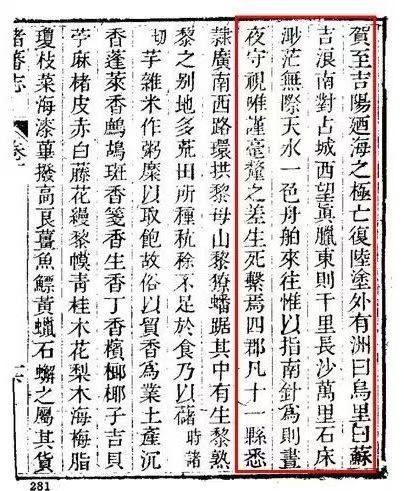 賀至吉陽廼海之極亡復陸塗外有洲曰烏里曰蘇
吉浪南對占城西望眞臘東則千里長沙萬里石床
渺茫無際天水一色舟舶來往惟以指南針為則晝
夜守視唯謹毫釐之差生死繫焉四郡凡十一縣悉
隸廣南西路環拱黎母山黎獠蟠踞其中有生黎熟
黎之别地多荒田所種秔稌不足於食乃以藷時諸
切芋雜米作粥糜以取飽故俗以貿香為業土產沉
香蓬萊香鷓鴣斑香箋香生香丁香檳榔椰子吉貝
苧麻楮皮赤白藤花縵黎幙青桂木花梨木海梅脂
瓊枝菜海漆蓽撥高良薑魚鰾黃蠟石蠏之屬其貨
諸蕃志
281